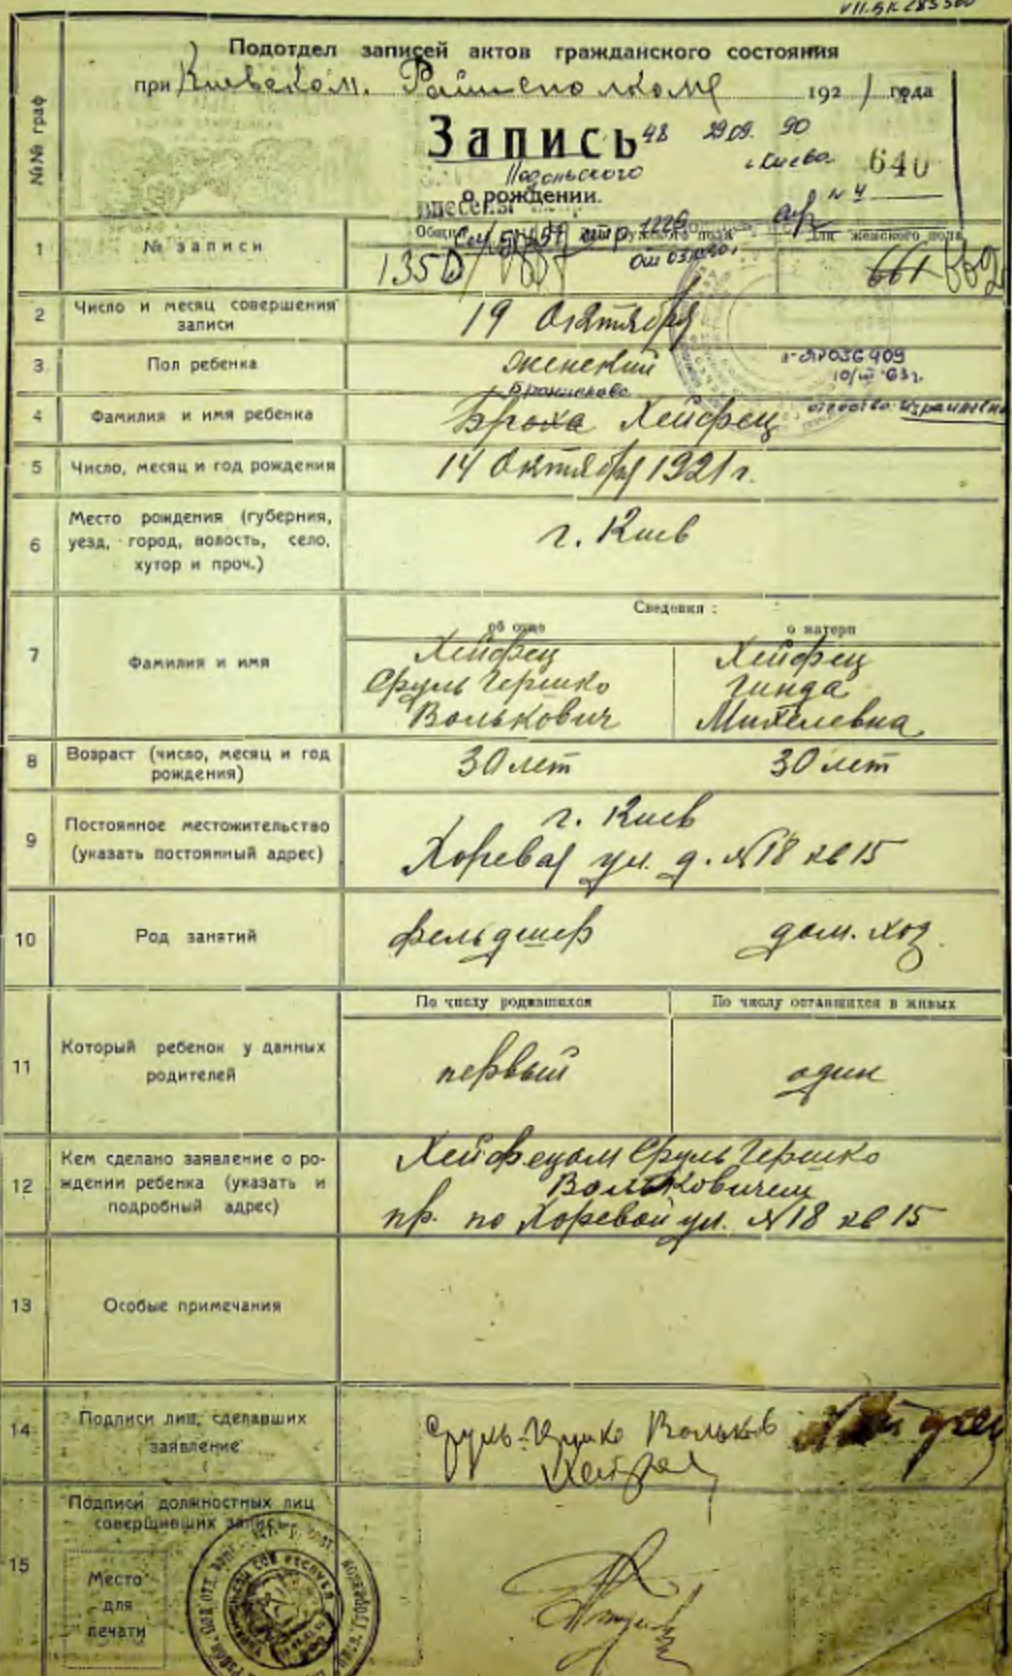 VII-БК 285500
Подотдел записей актов гражданского состояния
при Киевском. Райисполкоме 1921 года
№№ граф
Запись
48 29 09. 90
г. Киева
640
Подольского
о рождении.
внесены
N 4
1
№ записи
Общий
мужского пола
Для женского пола
1350
661
2
Число и месяц совершения
записи
19 Октября
3
Пол ребенка
женский
10/III 63 г.
4
Фамилия и имя ребенка
Бронислава
Броха Хейфец
отчество: Израилевна
5
Число, месяц и год рождения
14 Октября 1921 г.
6
Место рождения (губерния,
уезд, город, волость, село,
хутор и проч.)
г. Киев
Сведения :
об отце
о матери
7
Фамилия и имя
Хейфец
Сруль Гершко
Волькович
Хейфец
Гинда
Михелевна
8
Возраст (число, месяц и год
рождения)
30 лет
30 лет
9
Постоянное местожительство
(указать постоянный адрес)
г. Киев
Хоревая ул. д. №18 кв 15
10
Род занятий
фельдшер
дом. хоз.
11
Который ребенок у данных
родителей
По числу родившихся
По числу оставшихся в живых
первый
один
12
Кем сделано заявление о ро-
ждении ребенка (указать и
подробный адрес)
Хейфецом Сруль Гершко
Вольковичем
пр. по Хоревой ул. №18 кв 15
13
Особые примечания
14
Подписи лиц, сделавших
заявление
Сруль-Гершко Вольков
Хейфец
15
Подписи должностных лиц
совершивших запись
Место
для
печати